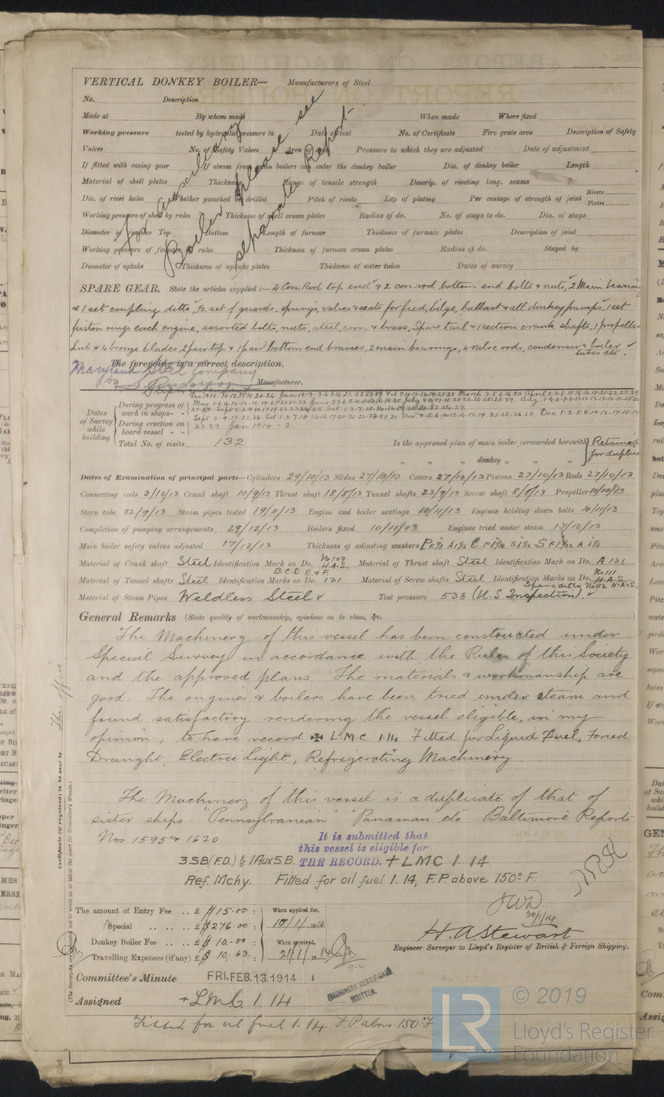 VERTICAL DONKEY BOILER— Manufacturers of Steel
No. Description
Made at By whom made When made Where fixed
Working pressure tested by hydraulic pressure to Date of test No. of Certificate Fire grate area Description of Safety
Valves No. of Safety Valves Area Pressure to which they are adjusted Date of adjustment
If fitted with easing gear If steam from main boilers can enter the donkey boiler Dia. of donkey boiler Length
Material of shell plates Thickness Range of tensile strength Descrip. of riveting long. seams
Dia. of rivet holes Whether punched or drilled Pitch of rivets Lap of plating Per centage of strength of joint Rivets Plates
Working pressure of shell by rules Thickness of shell crown plates Radius of do. No. of stays to do. Dia. of stays
Diameter of furnace Top Bottom Length of furnace Thickness of furnace plates Description of joint
Working pressure of furnace by rules Thickness of furnace crown plates Radius of do. Stayed by
Diameter of uptake Thickness of uptake plates Thickness of water tubes Dates of survey
For Auxiliary Boiler please see separate Report
SPARE GEAR. State the articles supplied:— 4 Con Rod top end & 2 con rod bottom end bolts & nuts, 2 Main bearing
& 1 set coupling ditto, ½ set of guards, springs, valves & seats for feed, bilge, ballast & all donkey pumps, 1 set
piston rings each engine, assorted bolts, nuts, steel, iron & brass, Spare tail & 1 section crank shafts, 1 propeller
hub & 4 bronge blades, 2 pair top & 1 pair bottom end brasses, 2 main bearings, 4 valve rods, condenser & boiler tubes etc.
The foregoing is a correct description.
Maryland Steel Company
Manufacturer.
Dates of Survey while building
During progress of work in shops - -
During erection on board vessel - - -
Total No. of visits 132
Is the approved plan of main boiler forwarded herewith Retained for duplicate
" " " donkey " " "
Dates of Examination of principal parts—Cylinders 29/10/13 Slides 27/10/13 Covers 27/10/13 Pistons 27/10/13 Rods 27/10/13
Connecting rods 3/10/13 Crank shaft 10/9/13 Thrust shaft 18/8/13 Tunnel shafts 23/9/13 Screw shaft 8/8/13 Propeller 10/10/13
Stern tube 22/9/13 Steam pipes tested 19/11/13 Engine and boiler seatings 10/11/13 Engines holding down bolts 14/11/13
Completion of pumping arrangements 29/12/13 Boilers fixed 10/11/13 Engines tried under steam 17/12/13
Main boiler safety valves adjusted 17/12/13 Thickness of adjusting washers
Material of Crank shaft Steel Identification Mark on Do. No 109 H.A.S. Material of Thrust shaft Steel Identification Mark on Do. A 131
Material of Tunnel shafts Steel Identification Marks on Do. B.C.D.E & F. 131 Material of Screw shafts Steel Identification Marks on Do. No 111 H.A.S.
Material of Steam Pipes Weldless Steel Test pressure 535 (U.S Inspection).
General Remarks (State quality of workmanship, opinions as to class, &c.
The Machinery of this vessel has been constructed under
Special Survey in accordance with the Rules of this Society
and the approved plans. The materials & workmanship are
good. The engines & boilers have been tried under steam and
found satisfactory rendering the vessel eligible, in my
opinion, to have record ✠ LMC 1.14 Fitted for Liquid Fuel, Forced
Draught, Electric Light, Refrigerating Machinery.
The Machinery of this vessel is a duplicate of that of
sister ships "Pennsylvanian" "Panaman etc Baltimore Reports
Nos 1595 & 1620
It is submitted that
this vessel is eligible for
THE RECORD. + LMC 1.14
3SB (F.D.) & 1 Aux S.B.
Ref. Mchy. Fitted for oil fuel 1.14, F.P. above 150° F.
The amount of Entry Fee .. £ $ 15.00 When applied for,
Special .. .. £ $276.00 15/1/1914
Donkey Boiler Fee .. .. £ $ 10.00 When received,
Travelling Expenses (if any) £ $ 10.63 21/1/14
H. A Stewart
Engineer Surveyor to Lloyd's Register of British & Foreign Shipping.
Committee's Minute FRI. FEB. 13. 1914
Assigned + LMC 1.14
MACHINERY CERTIFICATE WRITTEN.
Fitted for oil fuel 1.14 F.P. above 150°F
LR © 2019
Lloyd's Register
Foundation